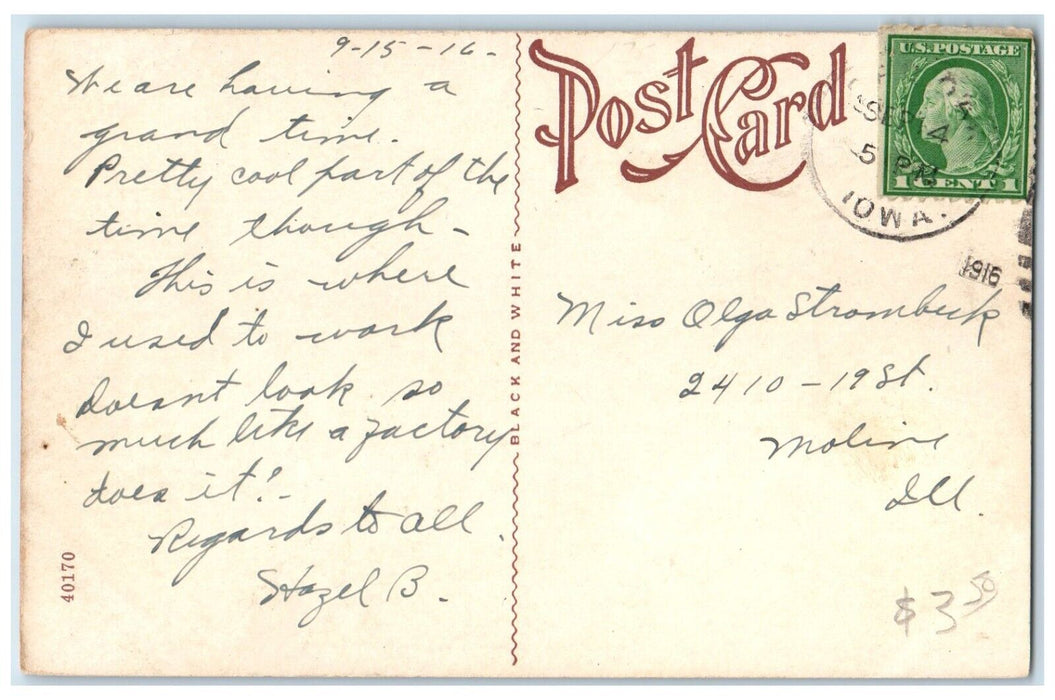 9-15-16-
We are having a
grand time.
Pretty cool part of the
time though -
This is where
I used to work
doesnt look so
much like a factory
does it? -
Regards to all.
Hazel B.
40170
BLACK AND WHITE
Post Card
U.S. POSTAGE
1 CENT 1
4
5 PM
IOWA.
1916
Miss Olga Strombeck
2410 - 19 St.
Moline
Ill.
$3 50